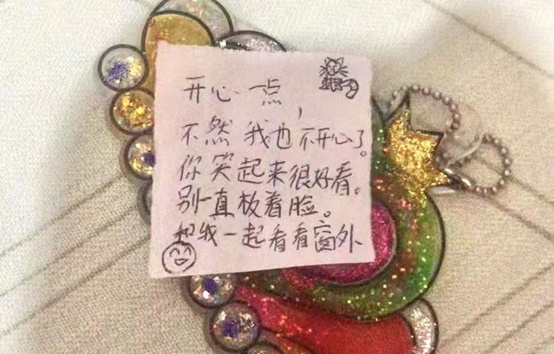 开心一点，
不然我也不开心了。
你笑起来很好看。
别一直板着脸。
和我一起看看窗外